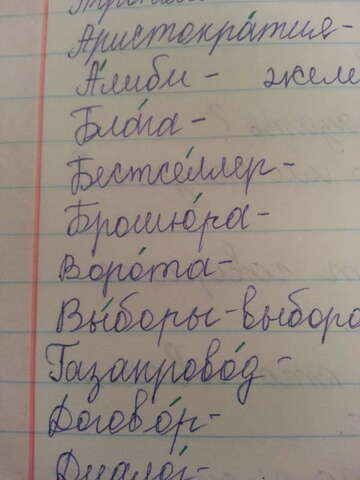 Аристокра́тия-
А́либи - желе
Бла́га-
Бестсе́ллер-
Брошю́ра-
Воро́та-
Вы́боры-выборо
Газапрово́д-
Догово́р-
Диало́г-